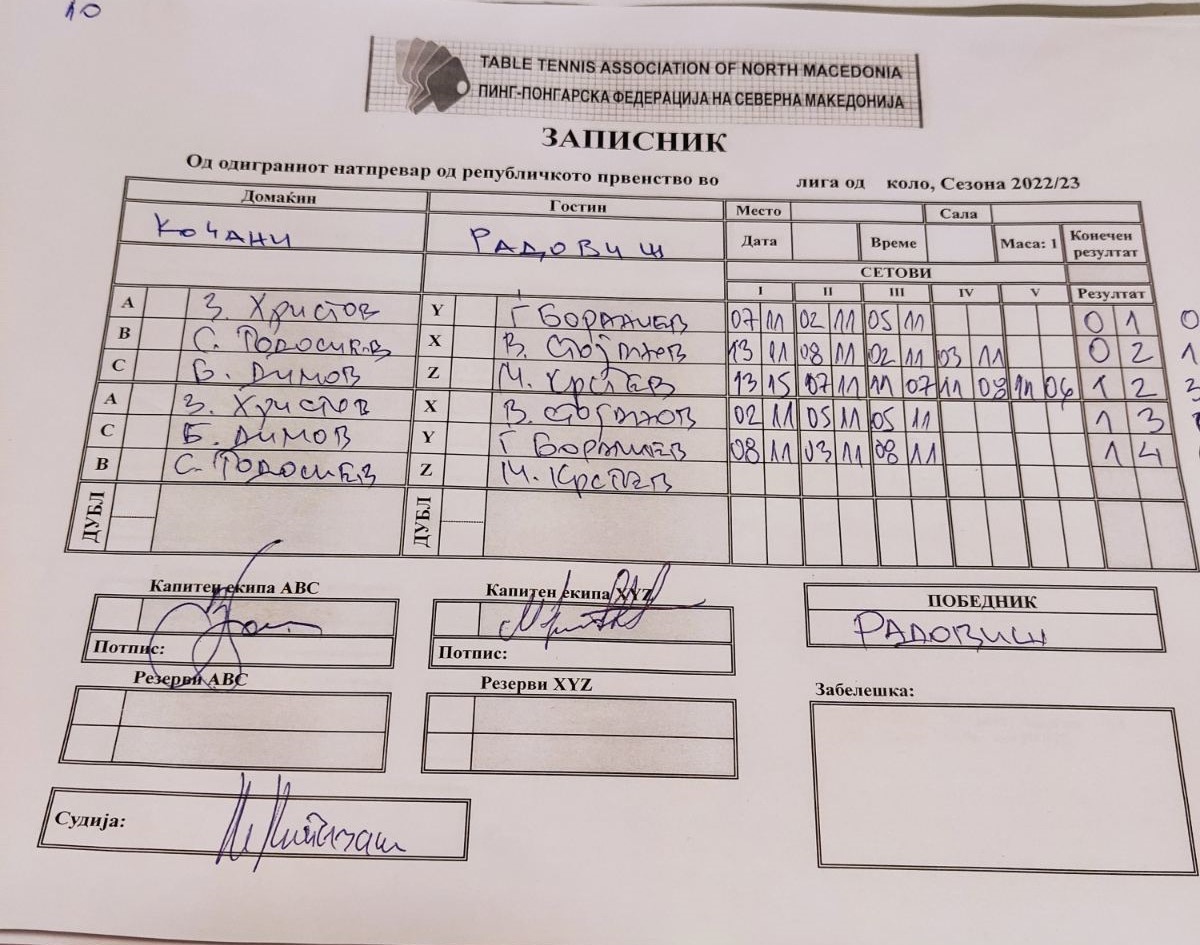 10
TABLE TENNIS ASSOCIATION OF NORTH MACEDONIA
ПИНГ-ПОНГАРСКА ФЕДЕРАЦИЈА НА СЕВЕРНА МАКЕДОНИЈА
ЗАПИСНИК
Од одиграниот натпревар од републичкото првенство во лига од коло, Сезона 2022/23
Домаќин Гостин Место Сала
Кочани Радовиш Дата Време Маса: 1 Конечен резултат
СЕТОВИ
I II III IV V Резултат
A З. Христов Y Г 07 11 02 11 05 11 0 1 0
B С. X В. 13 11 08 11 02 11 03 11 0 2 1
C Б. Димов Z М. Крстев 13 15 07 11 11 07 11 08 11 06 1 2 3
A З. Христов X В. 02 11 05 11 05 11 1 3
C Б. Димов Y Г 08 11 03 11 08 11 1 4
B С. Z М. Крстев
ДУБЛ ДУБЛ
Капитен екипа ABC Капитен екипа XYZ ПОБЕДНИК
Радовиш
Потпис: Потпис:
Резерви ABC Резерви XYZ Забелешка:
Судија: